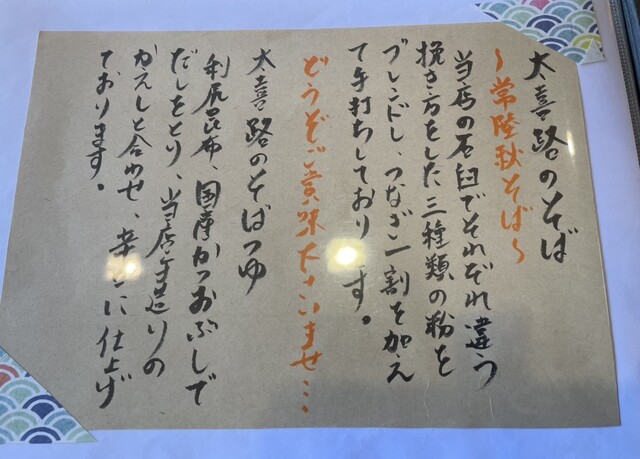 太喜路のそば
〜常陸秋そば〜
当店の石臼でそれぞれ違う
挽き方をした三種類の粉を
ブレンドし、つなぎ一割を加え
て手打ちしております。
どうぞご賞味下さいませ…
太喜路のそばつゆ
利尻昆布、国産かつおぶしで
だしをとり、当店手造りの
かえしと合わせ、辛口に仕上げ
ております。